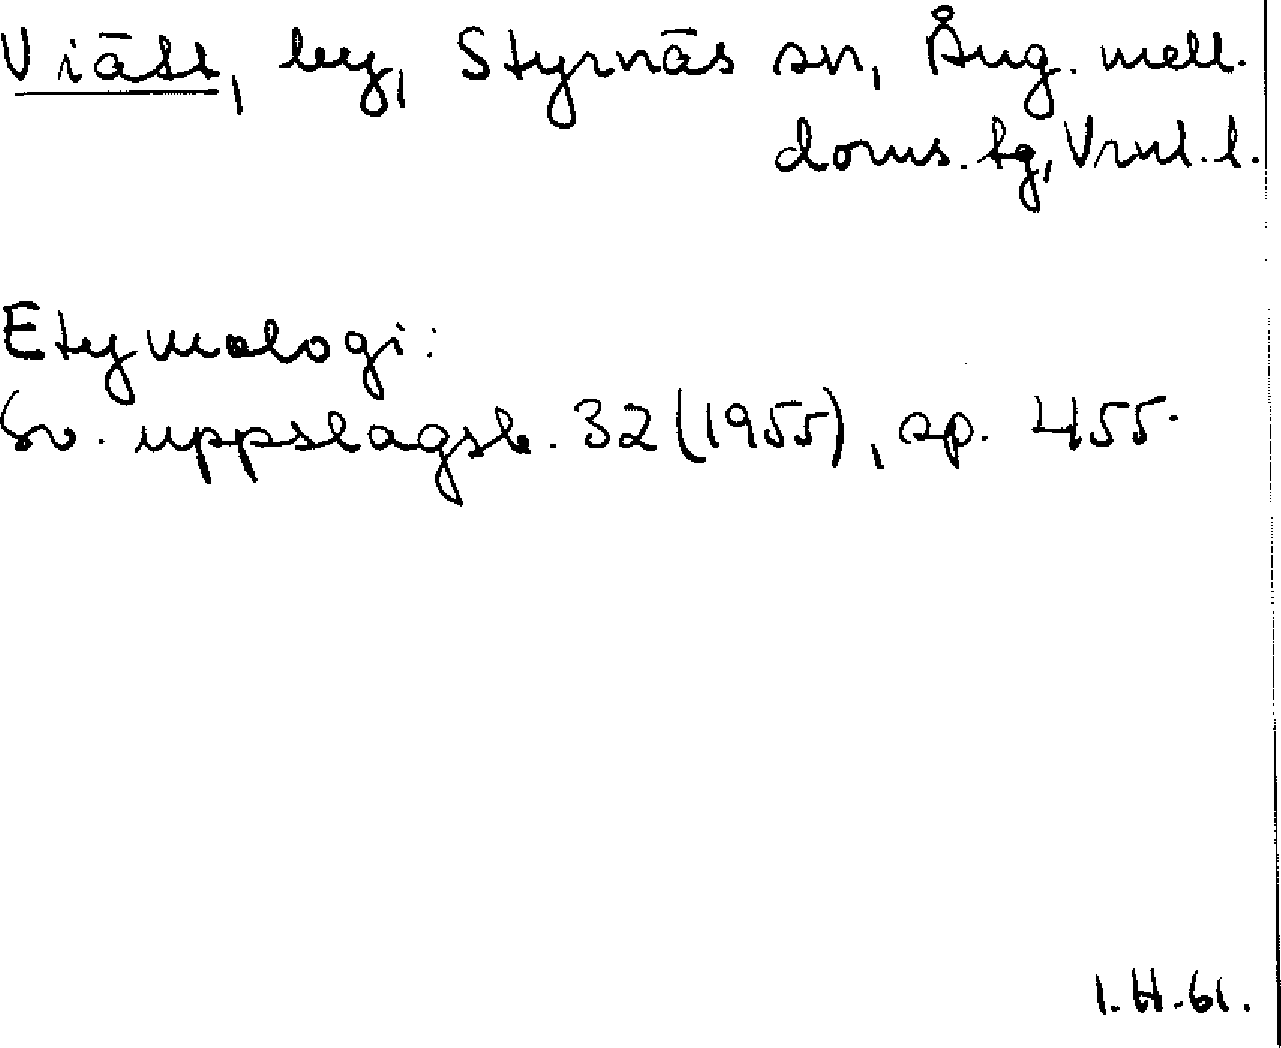 Viäst, by, Styrnäs sn, Ång. mell.
doms. tg, Vrnl. l.
Etymologi:
Sv. uppslagsb. 32 (1955), sp. 455.
I. H. 61.